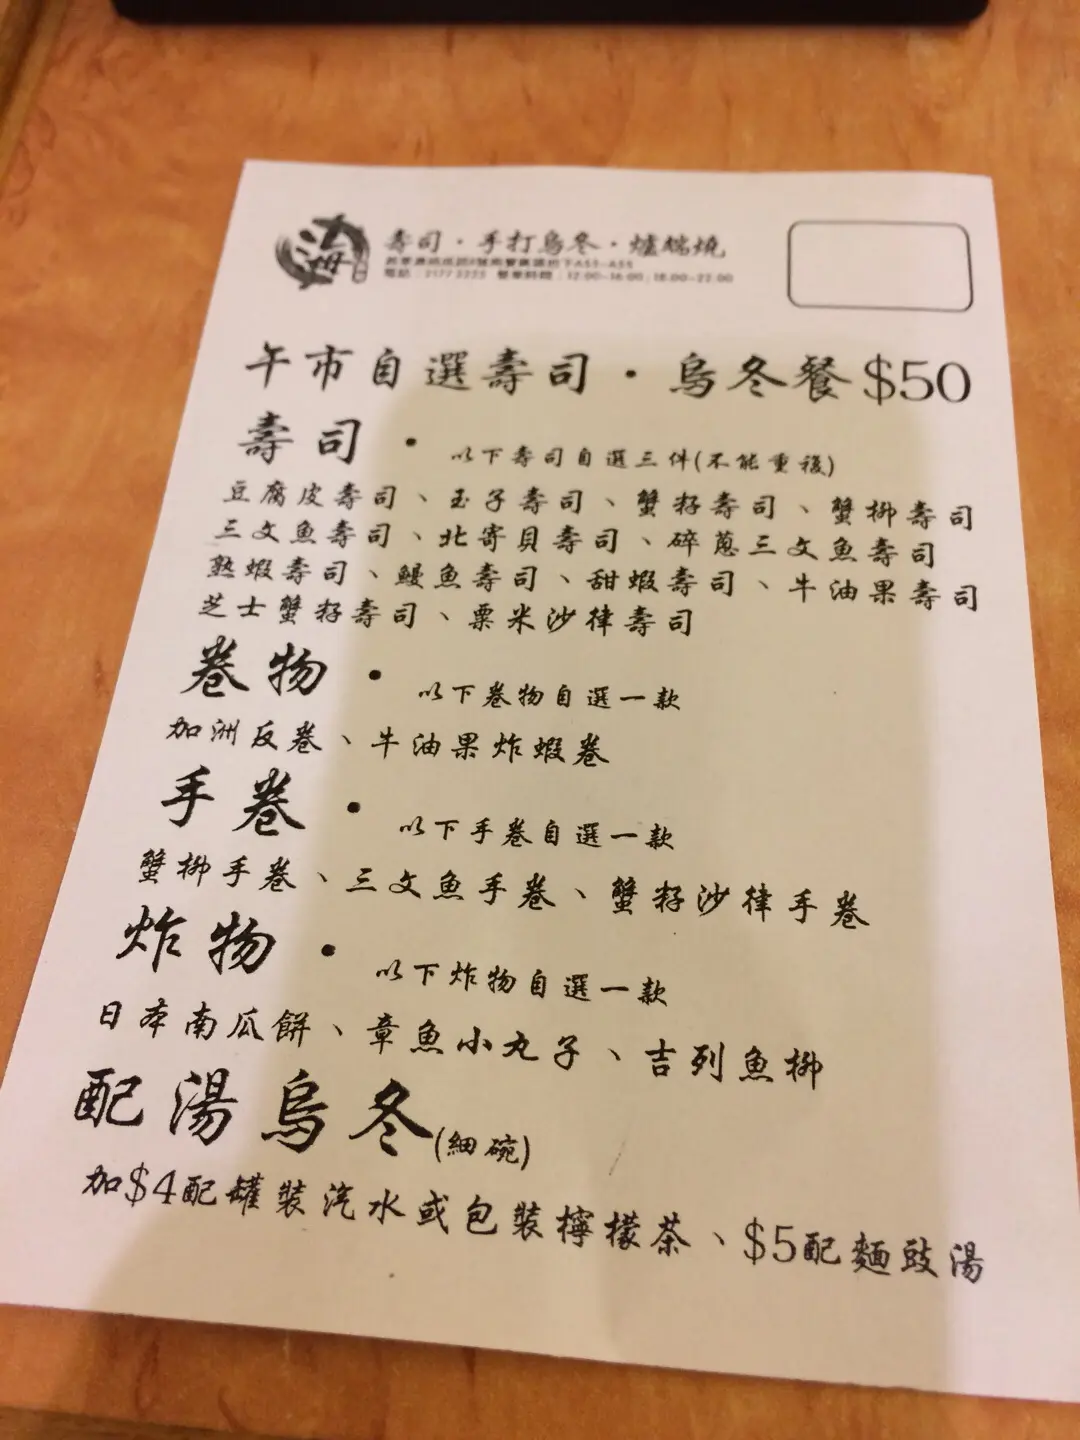 海
壽司・手打烏冬・爐端燒
電話：2177 3233 營業時間：12:00-16:00；18:00-22:00
午市自選壽司・烏冬餐$50
壽司・以下壽司自選三件(不能重複)
豆腐皮壽司、玉子壽司、蟹籽壽司、蟹柳壽司
三文魚壽司、北寄貝壽司、碎蔥三文魚壽司
熟蝦壽司、鰻魚壽司、甜蝦壽司、牛油果壽司
芝士蟹籽壽司、粟米沙律壽司
卷物・以下卷物自選一款
加洲反卷、牛油果炸蝦卷
手卷・以下手卷自選一款
蟹柳手卷、三文魚手卷、蟹籽沙律手卷
炸物・以下炸物自選一款
日本南瓜餅、章魚小丸子、吉列魚柳
配湯烏冬(細碗)
加$4配罐裝汽水或包裝檸檬茶、$5配麵豉湯